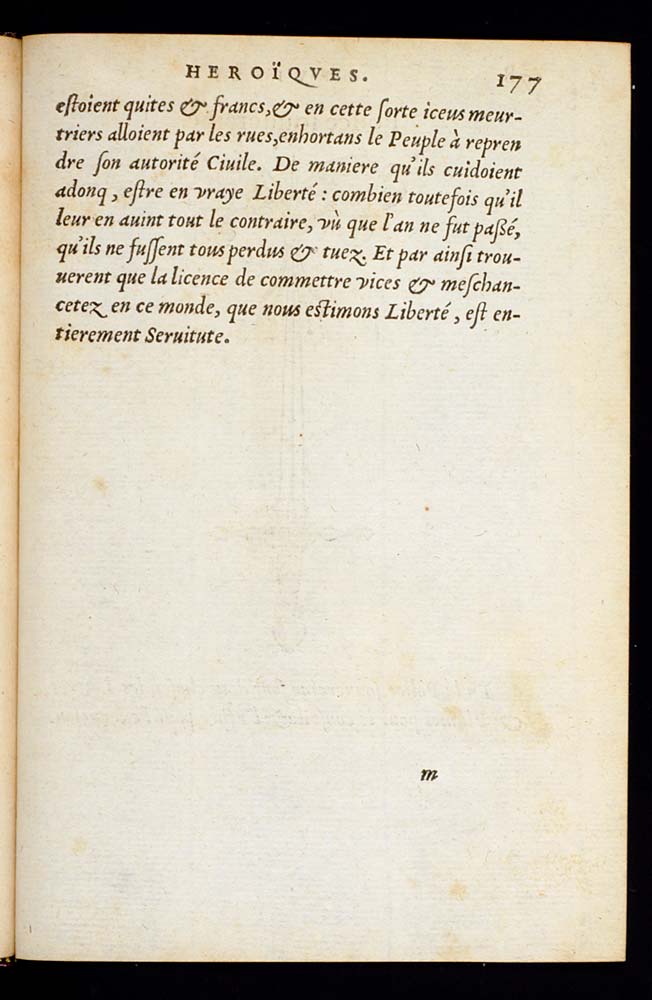 HEROÏQVES. 177
eſtoient quites & francs,& en cette ſorte iceus meur-
triers alloient par les rues,enhortans le Peuple à repren
dre ſon autorité Ciuile. De maniere qu'ils cuidoient
adonq, eſtre en vraye Liberté : combien toutefois qu'il
leur en auint tout le contraire, vù que l'an ne fut paßé,
qu'ils ne fuſſent tous perdus & tuez. Et par ainſi trou-
uerent que la licence de commettre vices & meſchan-
cetez en ce monde, que nous eſtimons Liberté, eſt en-
tierement Seruitute.
m